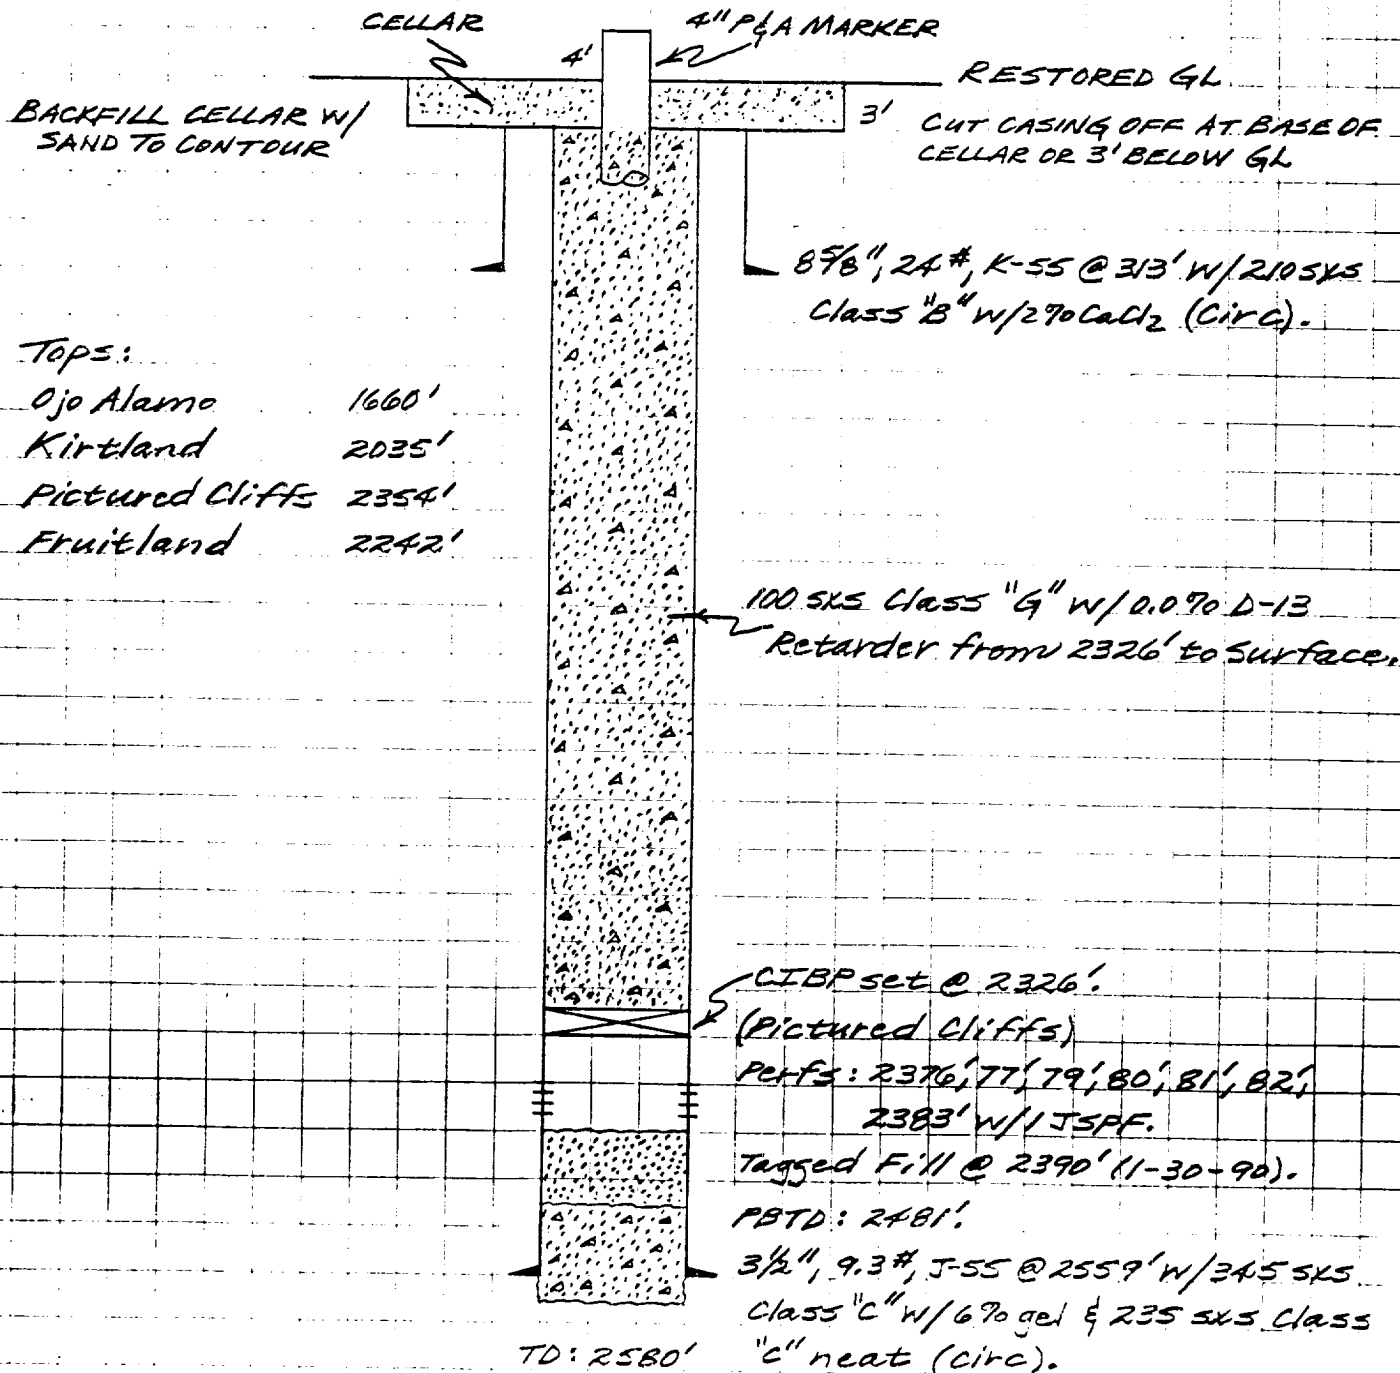 CELLAR
4" P&A MARKER
4'
RESTORED GL
BACKFILL CELLAR W/
SAND TO CONTOUR
3'
CUT CASING OFF AT BASE OF
CELLAR OR 3' BELOW GL
8 5/8", 24#, K-55 @ 313' W/ 210 SXS
Class "B" W/2% CaCl2 (Circ).
Tops:
Ojo Alamo 1660'
Kirtland 2035'
Pictured Cliffs 2354'
Fruitland 2242'
100 SXS Class "G" W/ 0.0% D-13
Retarder from 2326' to Surface.
CIBP set @ 2326'.
(Pictured Cliffs)
Perfs: 2376', 77', 79', 80', 81', 82',
2383' W/1 JSPF.
Tagged Fill @ 2390' (1-30-90).
PBTD: 2481'.
3 1/2", 9.3#, J-55 @ 2559' W/345 SXS
Class "C" W/ 6% gel & 235 SXS Class
"C" neat (circ).
TD: 2580'